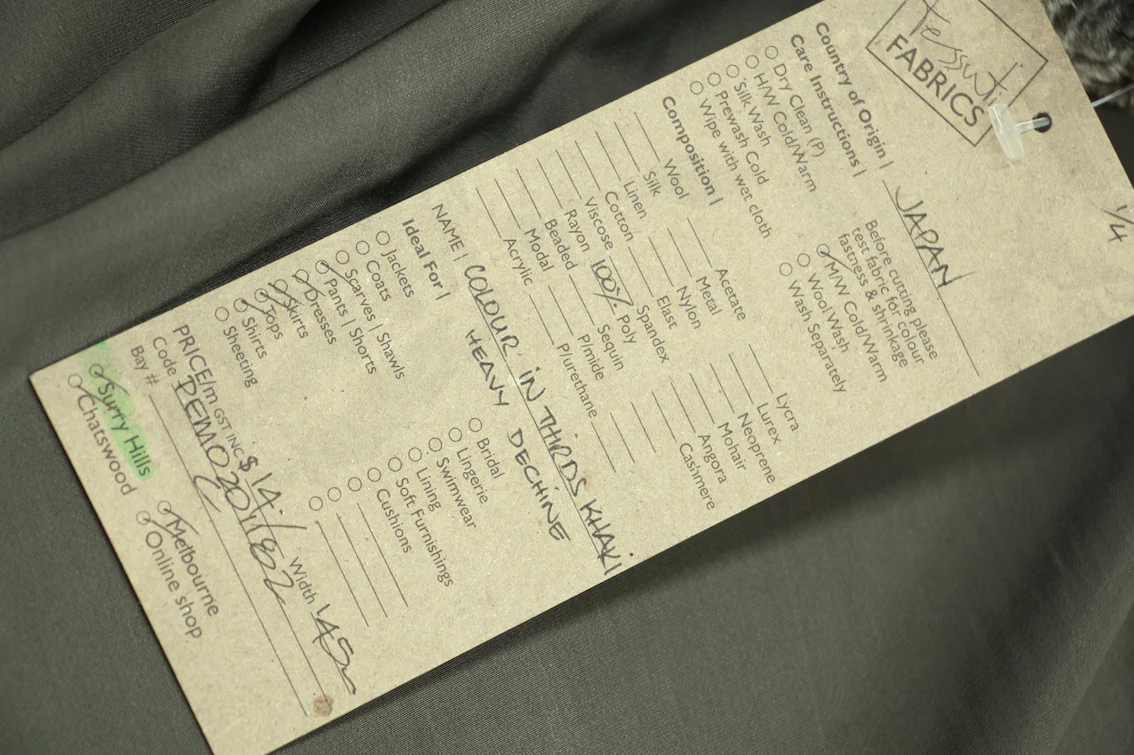 1/4
Tessuti
FABRICS
Country of Origin | JAPAN
Care Instructions |
Dry Clean (P)
H/W Cold/Warm
Silk Wash
Prewash Cold
Wipe with wet cloth
Before cutting please
test fabric for colour
fastness & shrinkage
M/W Cold/Warm
Wool Wash
Wash Separately
Composition |
Wool
Silk
Linen
Cotton
Viscose
Rayon
Beaded
Modal
Acrylic
Acetate
Metal
Nylon
Elast
Spandex
100% Poly
Sequin
P/mide
P/urethane
Lycra
Lurex
Neoprene
Mohair
Angora
Cashmere
NAME | COLOUR IN THIRDS KHAKI
HEAVY DECHINE
Ideal For |
Jackets
Coats
Scarves | Shawls
Pants | Shorts
Dresses
Skirts
Tops
Shirts
Sheeting
Bridal
Lingerie
Swimwear
Lining
Soft Furnishings
Cushions
PRICE/m GST INC $14/ Width 145
Code
Bay #
Surry Hills
Chatswood
Melbourne
Online shop